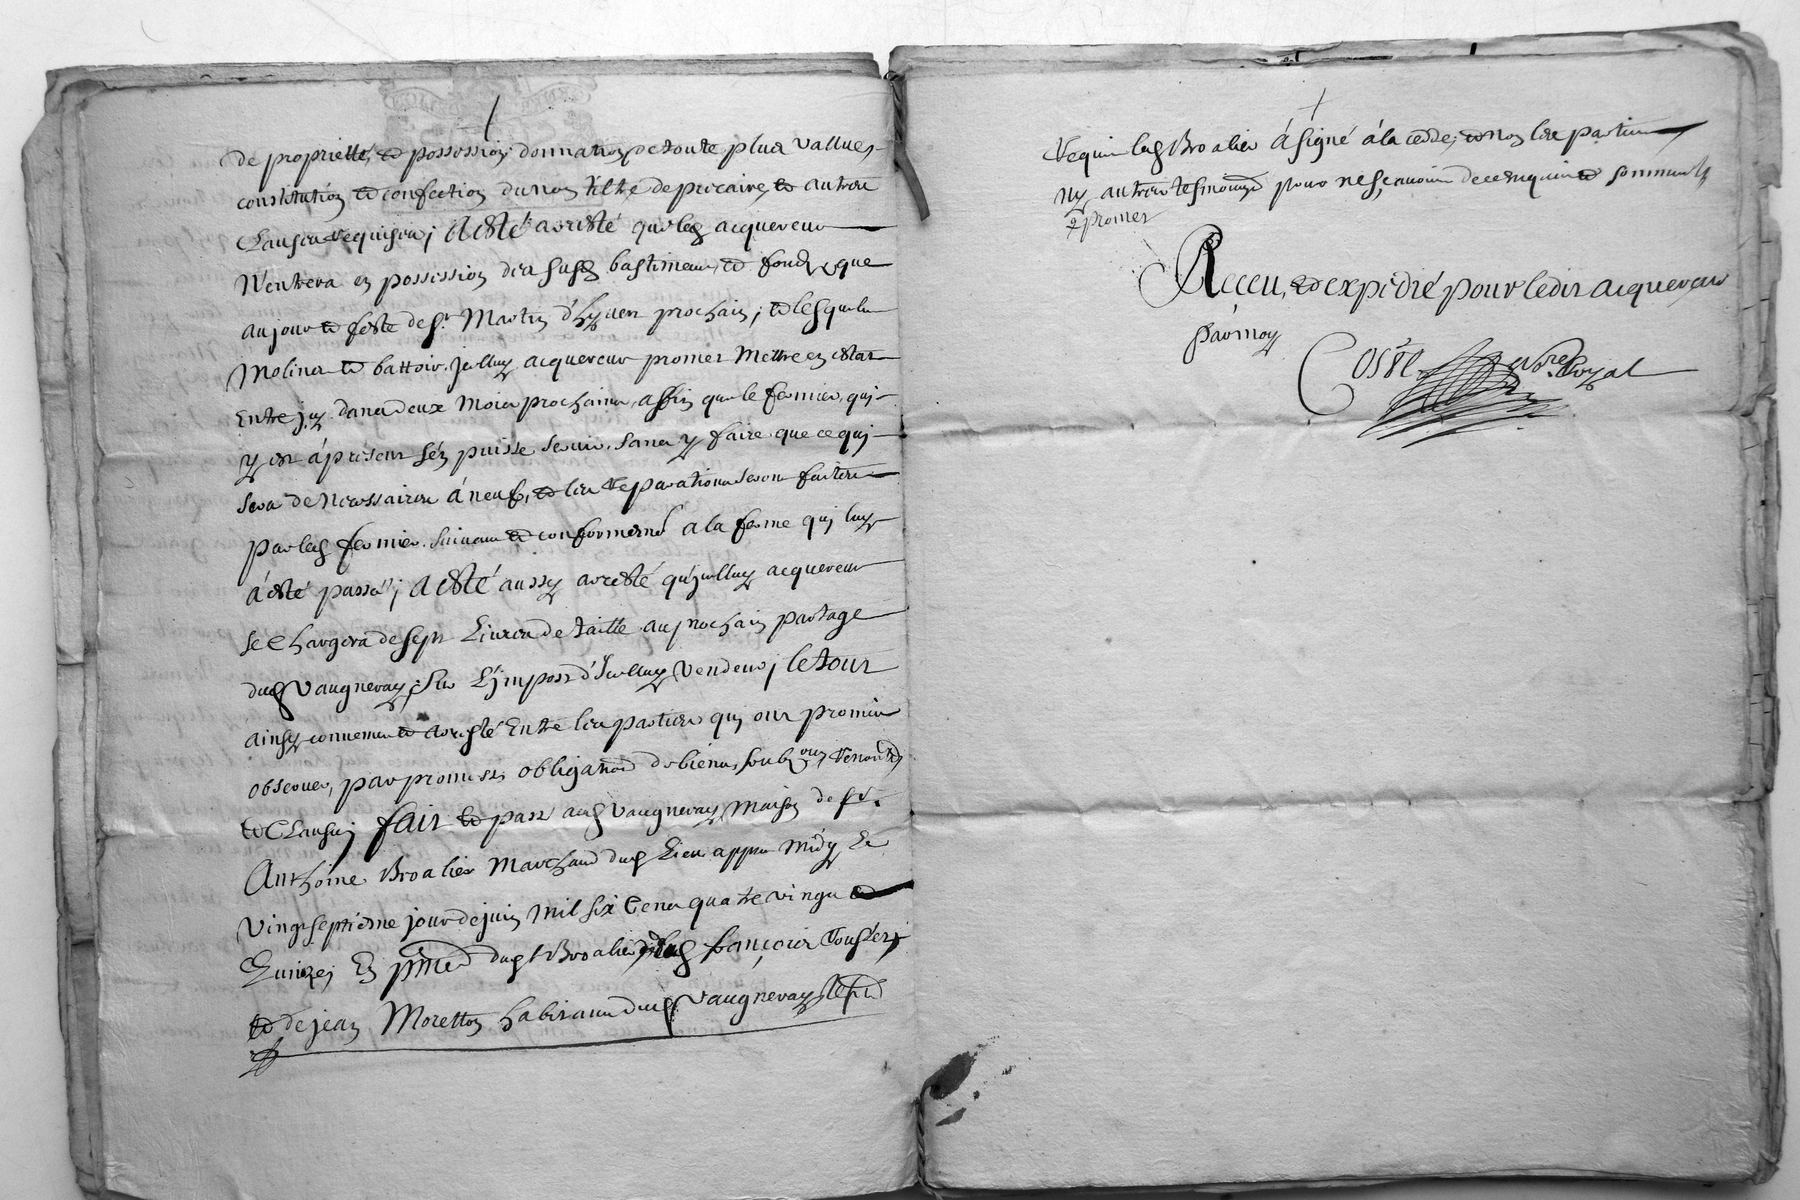 de proprietté, et possession, donnation de toute plus vallue,
constitution et confection du nom tiltre de precaire, et autres
Clauses requises; A esté arresté que led acquereur
N'entrera en possession des susd bastiment, et fond, que
au jour et feste de St Martin d'hyver prochain; et lesquels
Molins et battoir, Jcelluy acquereur promet Mettre en estat
Entre jcy dans deux Mois prochains, affin que le fermier, qui
y est á present s'en puisse servir, sans y faire que ce qui
sera de Necessaire á neuf, et les reparations seront faittes
par led fermier, suivant et conformemt a la ferme qui luy
á esté passé; A esté aussy arresté qu'jcelluy acquereur
se Chargera de sept Livres de taille au prochain partage
dud Vaugneray, sur L'jmpost d'Jcelluy Vendeur; le tout
ainsy convenu et arresté Entre les parties qui ont promis
observer, par promesses obligaôn de biens, soubzons, renonôn
et Clauses; fait et passé aud Vaugneray Maison de sr.
Anthoine Broalier Marchand dud Lieu appres midy Le
Vingtseptiesme jour de juin Mil six Cens quatre vingt et
Quinze; En pnce dud Broalier, dud françois
et de jean Moretton habitant dud Vaugneray
requis led Broalier á signé á la cedde, et non les parties
Ny autres tesmoings pour ne sçavoir de ce enquis et sommés
Receu, et expedié pour ledit acquereur
par moy
Coste Nore Royal